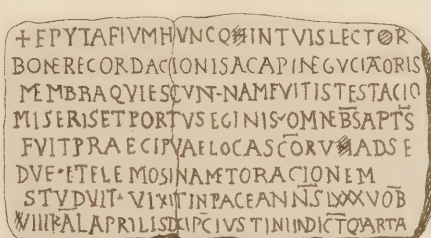 +EPYTAFIVMHVNCQINTVISLECTOR
BONERECORDACIONISACAPINEGVCIATORIS
MEMBRAQVIESCVNT·NAMFVITISTESTACIO
MISERISETPORTVSEGINIS·OMNEB̅SAPT̅S
FVITPRAECIPVAELOCASC̅ORVADSE
DVE·ETELEMOSINAMETORACIONEM
STVDVIT·VIXITINPACEANN̅SLXXXVOB̅
VIIIIKALAPRILISIXIP̅CIVSTINIINDICT̅QVARTA